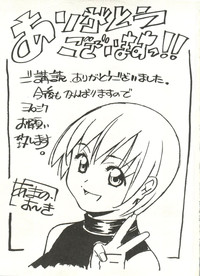 ありがとう
ございますっ!!
ご講読ありがとうございました。
今後もがんばりますので
ヨロシク
お願い
致します。